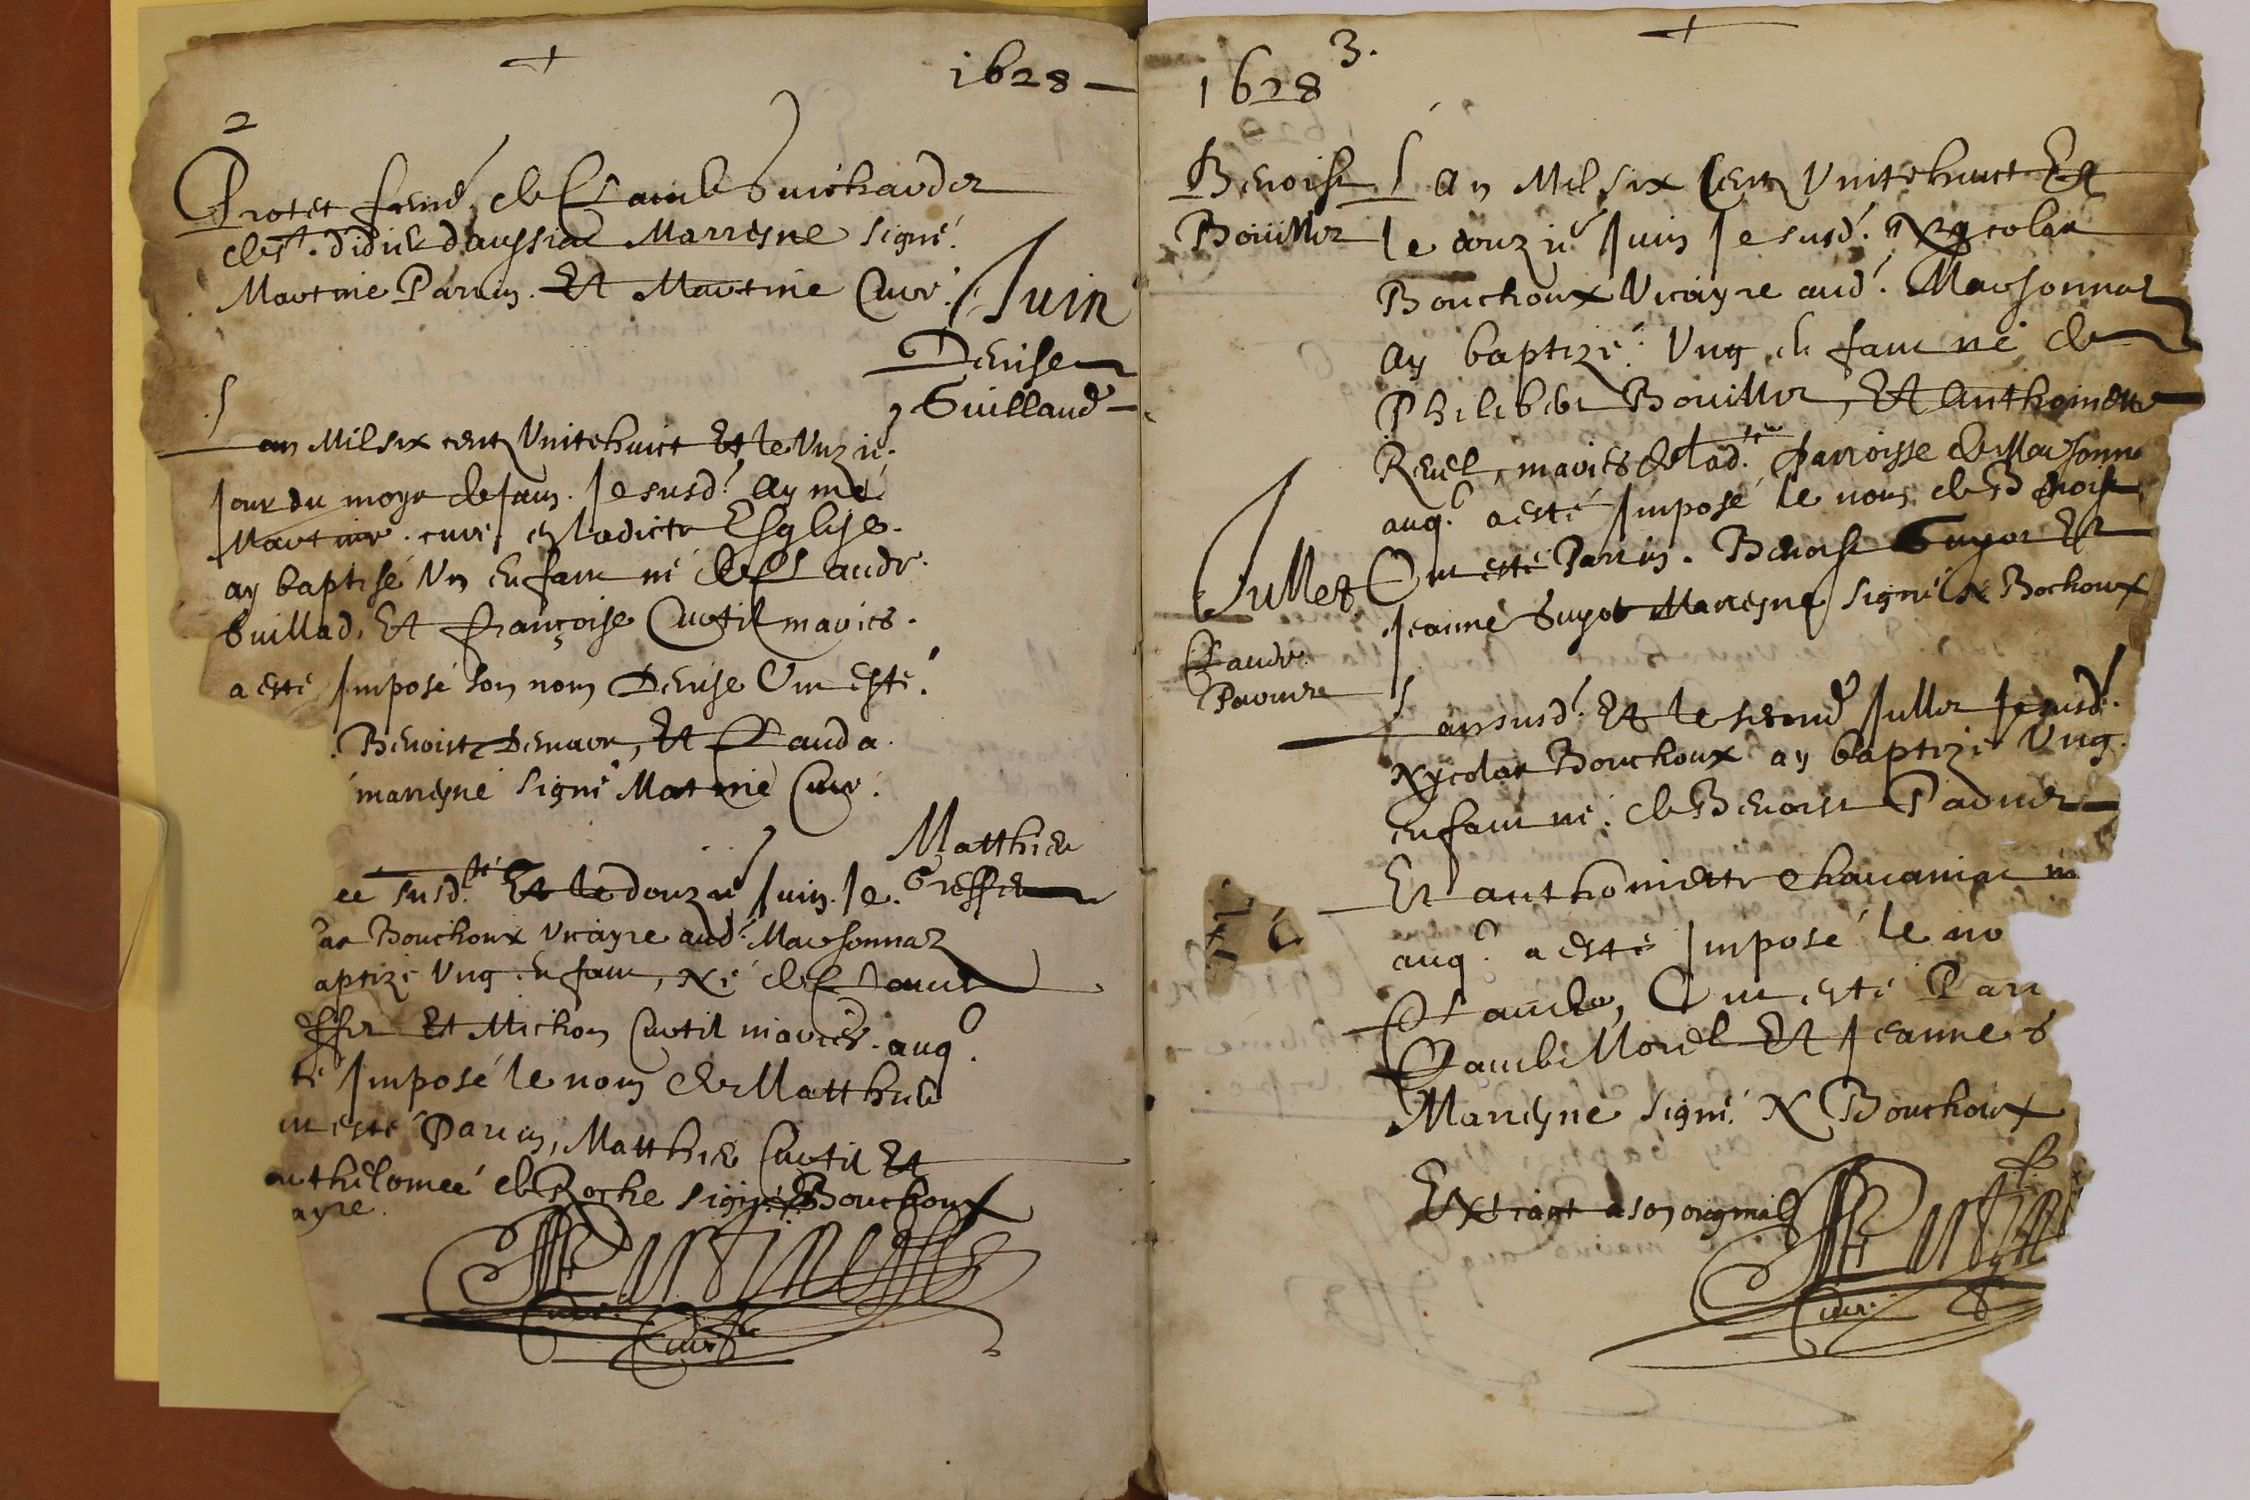 1628
2
Protet fem̃e de Claude Guichardet
de St. didier daussiat Marresne signé.
Martine Parrin. Et Martine Curé.
Juin
Denise
Guilland
L
an Mil six cent Vintehuict Et le Unzie.
Jour du moys de Juin. Je susd. Aymé
Martine. curé en ladicte Esglise.
ay baptisé Un enfant né de Claude.
Guillad, Et françoise Curtil mariés.
a esté Imposé son nom Denise Ont esté
Benoist Et Clauda.
marresne signé Martine Curé.
Matthieu
Greffet
ee susd.te Et le douzie Juin. Je.
las Bouchoux Vicayre aud. Marsonnaz
aptizé Ung enfant, Né de Claude
ffet Et Michon Curtil mariés. auq.
té Imposé le nom de Matthieu
nt esté Parrin, Matthieu Curtil Et
arthelomeé de Roche signé Bouchoux
ayre.
Curé.
Curé
3.
1628
Benoist
Bouillet
L An Mil six Cent Vintehuict Et
le douzié Juin Je susd. Nycolas
Bouchoux Vicayre aud. Marsonnaz
ay baptizé Ung enfant né de
Philibert Bouillet, Et Anthoinette
Revel, mariés de lad.te Parroisse de Marsonna
auq. a esté Imposé le nom de Benoist
Juillet
Ont esté Parrin. Benoist Guyot Et
Jeanne Guyot Marresne signé N Bochoux
Claude
L
an susd. Et le second Juillet Je susd.
Nycolas Bouchoux ay baptizé Ung
enfant né de Benoist
Et anthoniette m
auq. a esté Imposé le no
Claude, Ont esté Parr
Claude Morel Et Jeanne G
Marresne signé N Bouchoux
Extraict a son original
Curé.